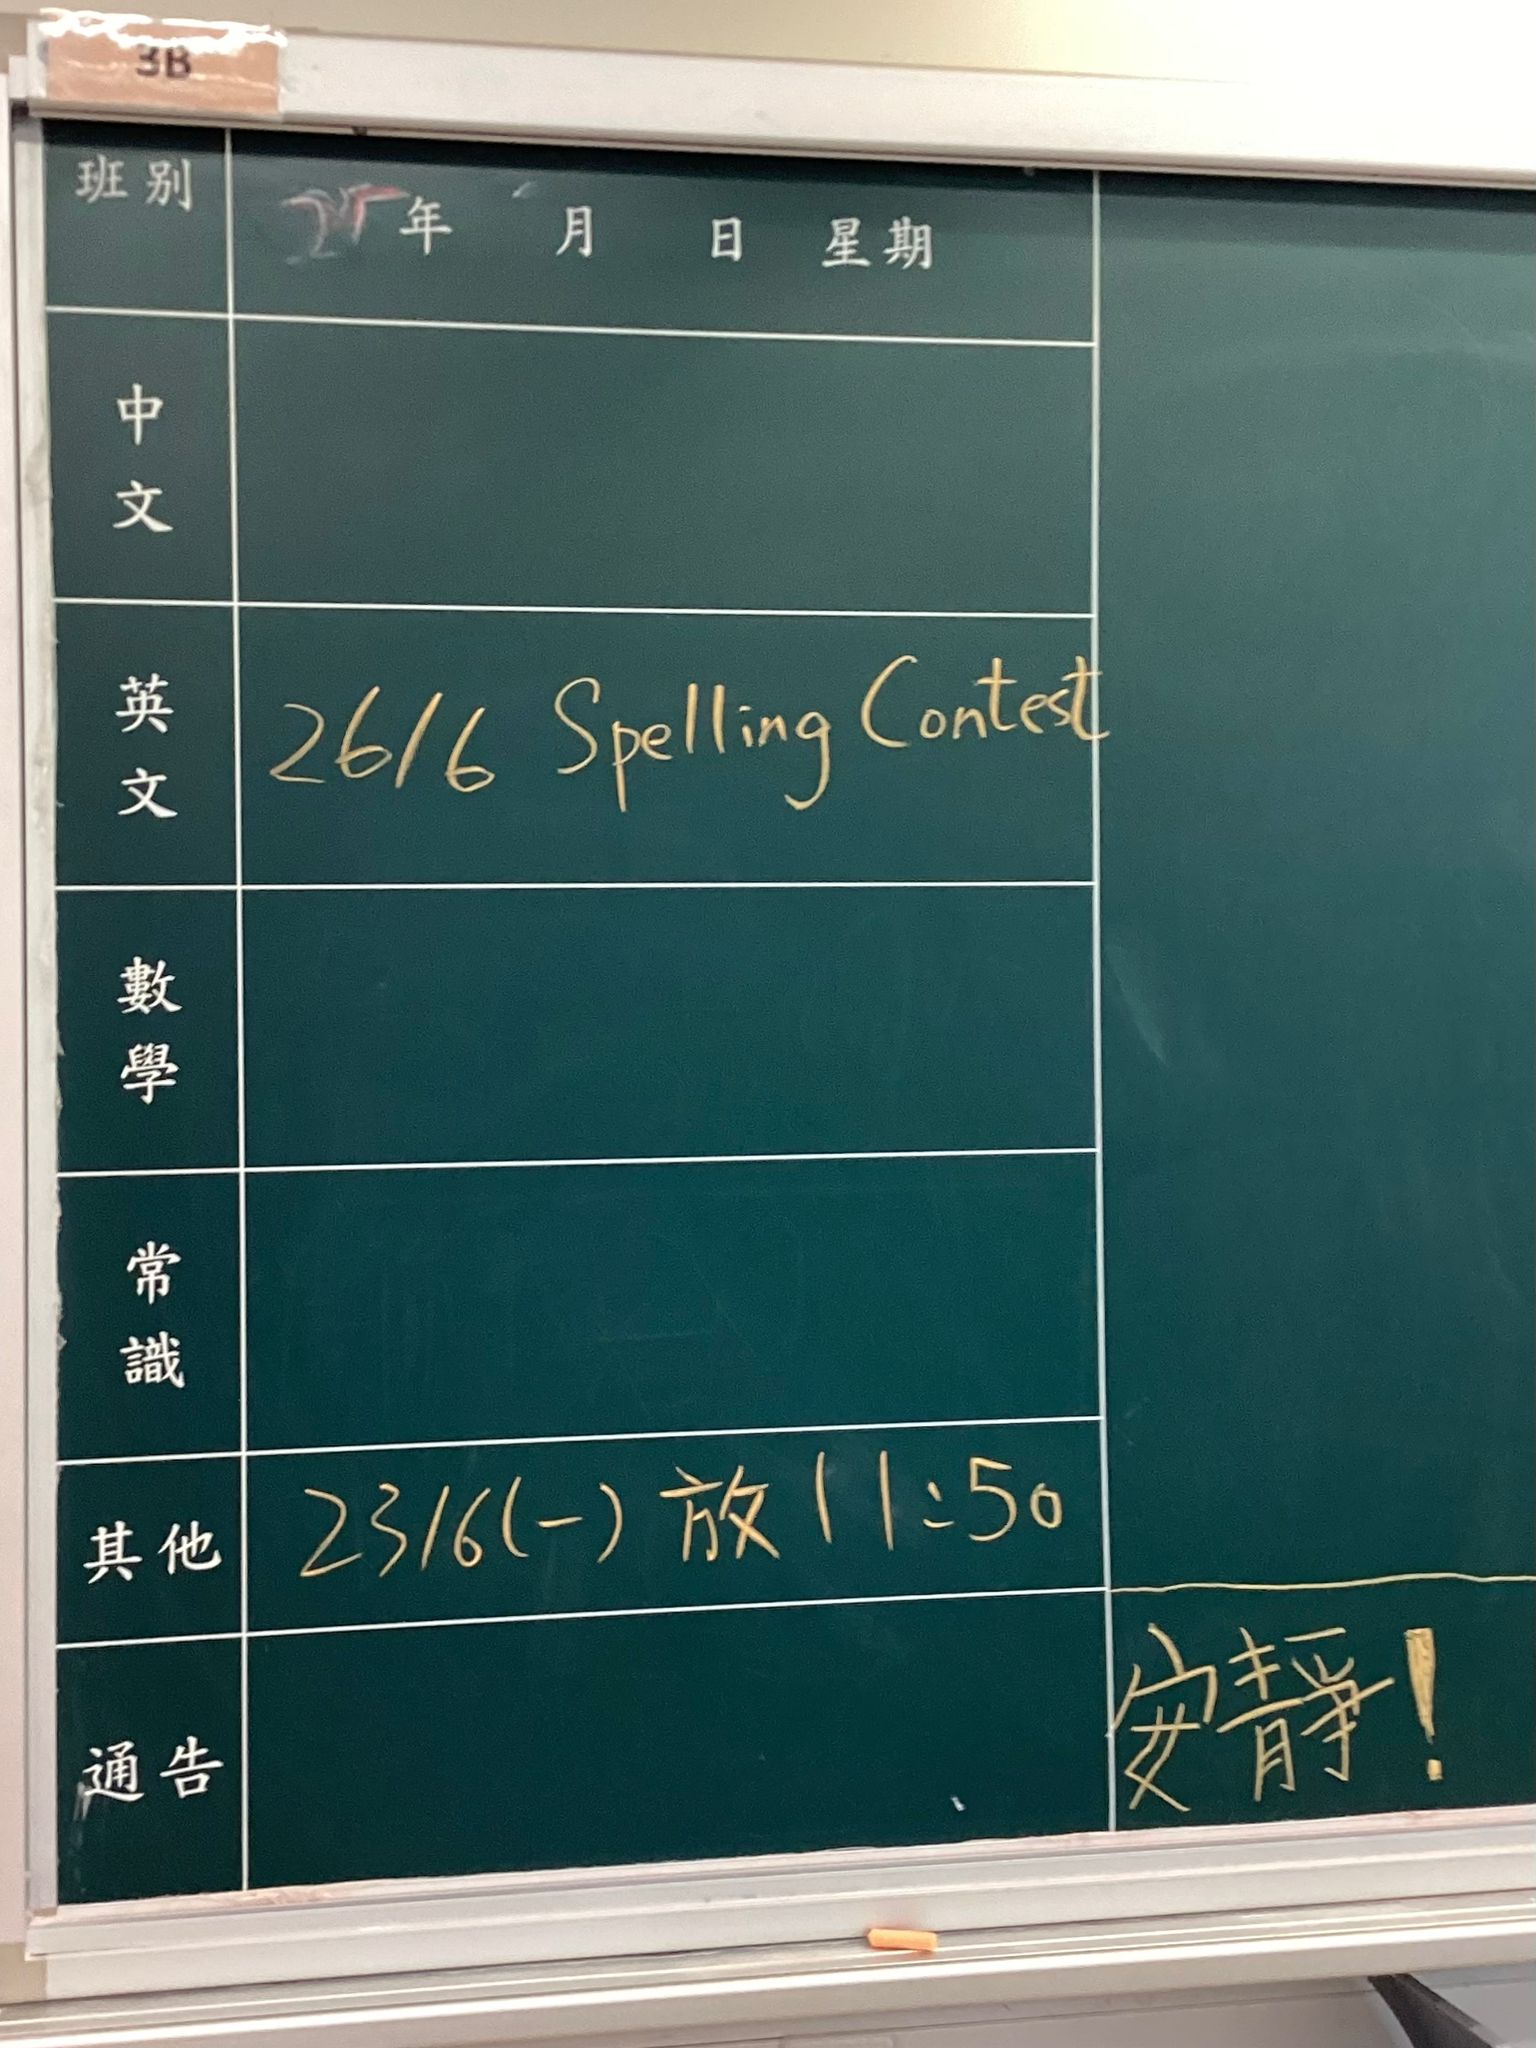 3B
班別
年 月 日 星期
中文
英文
26/6 Spelling Contest
數學
常識
其他
23/6(一) 放 11:50
通告
安靜!